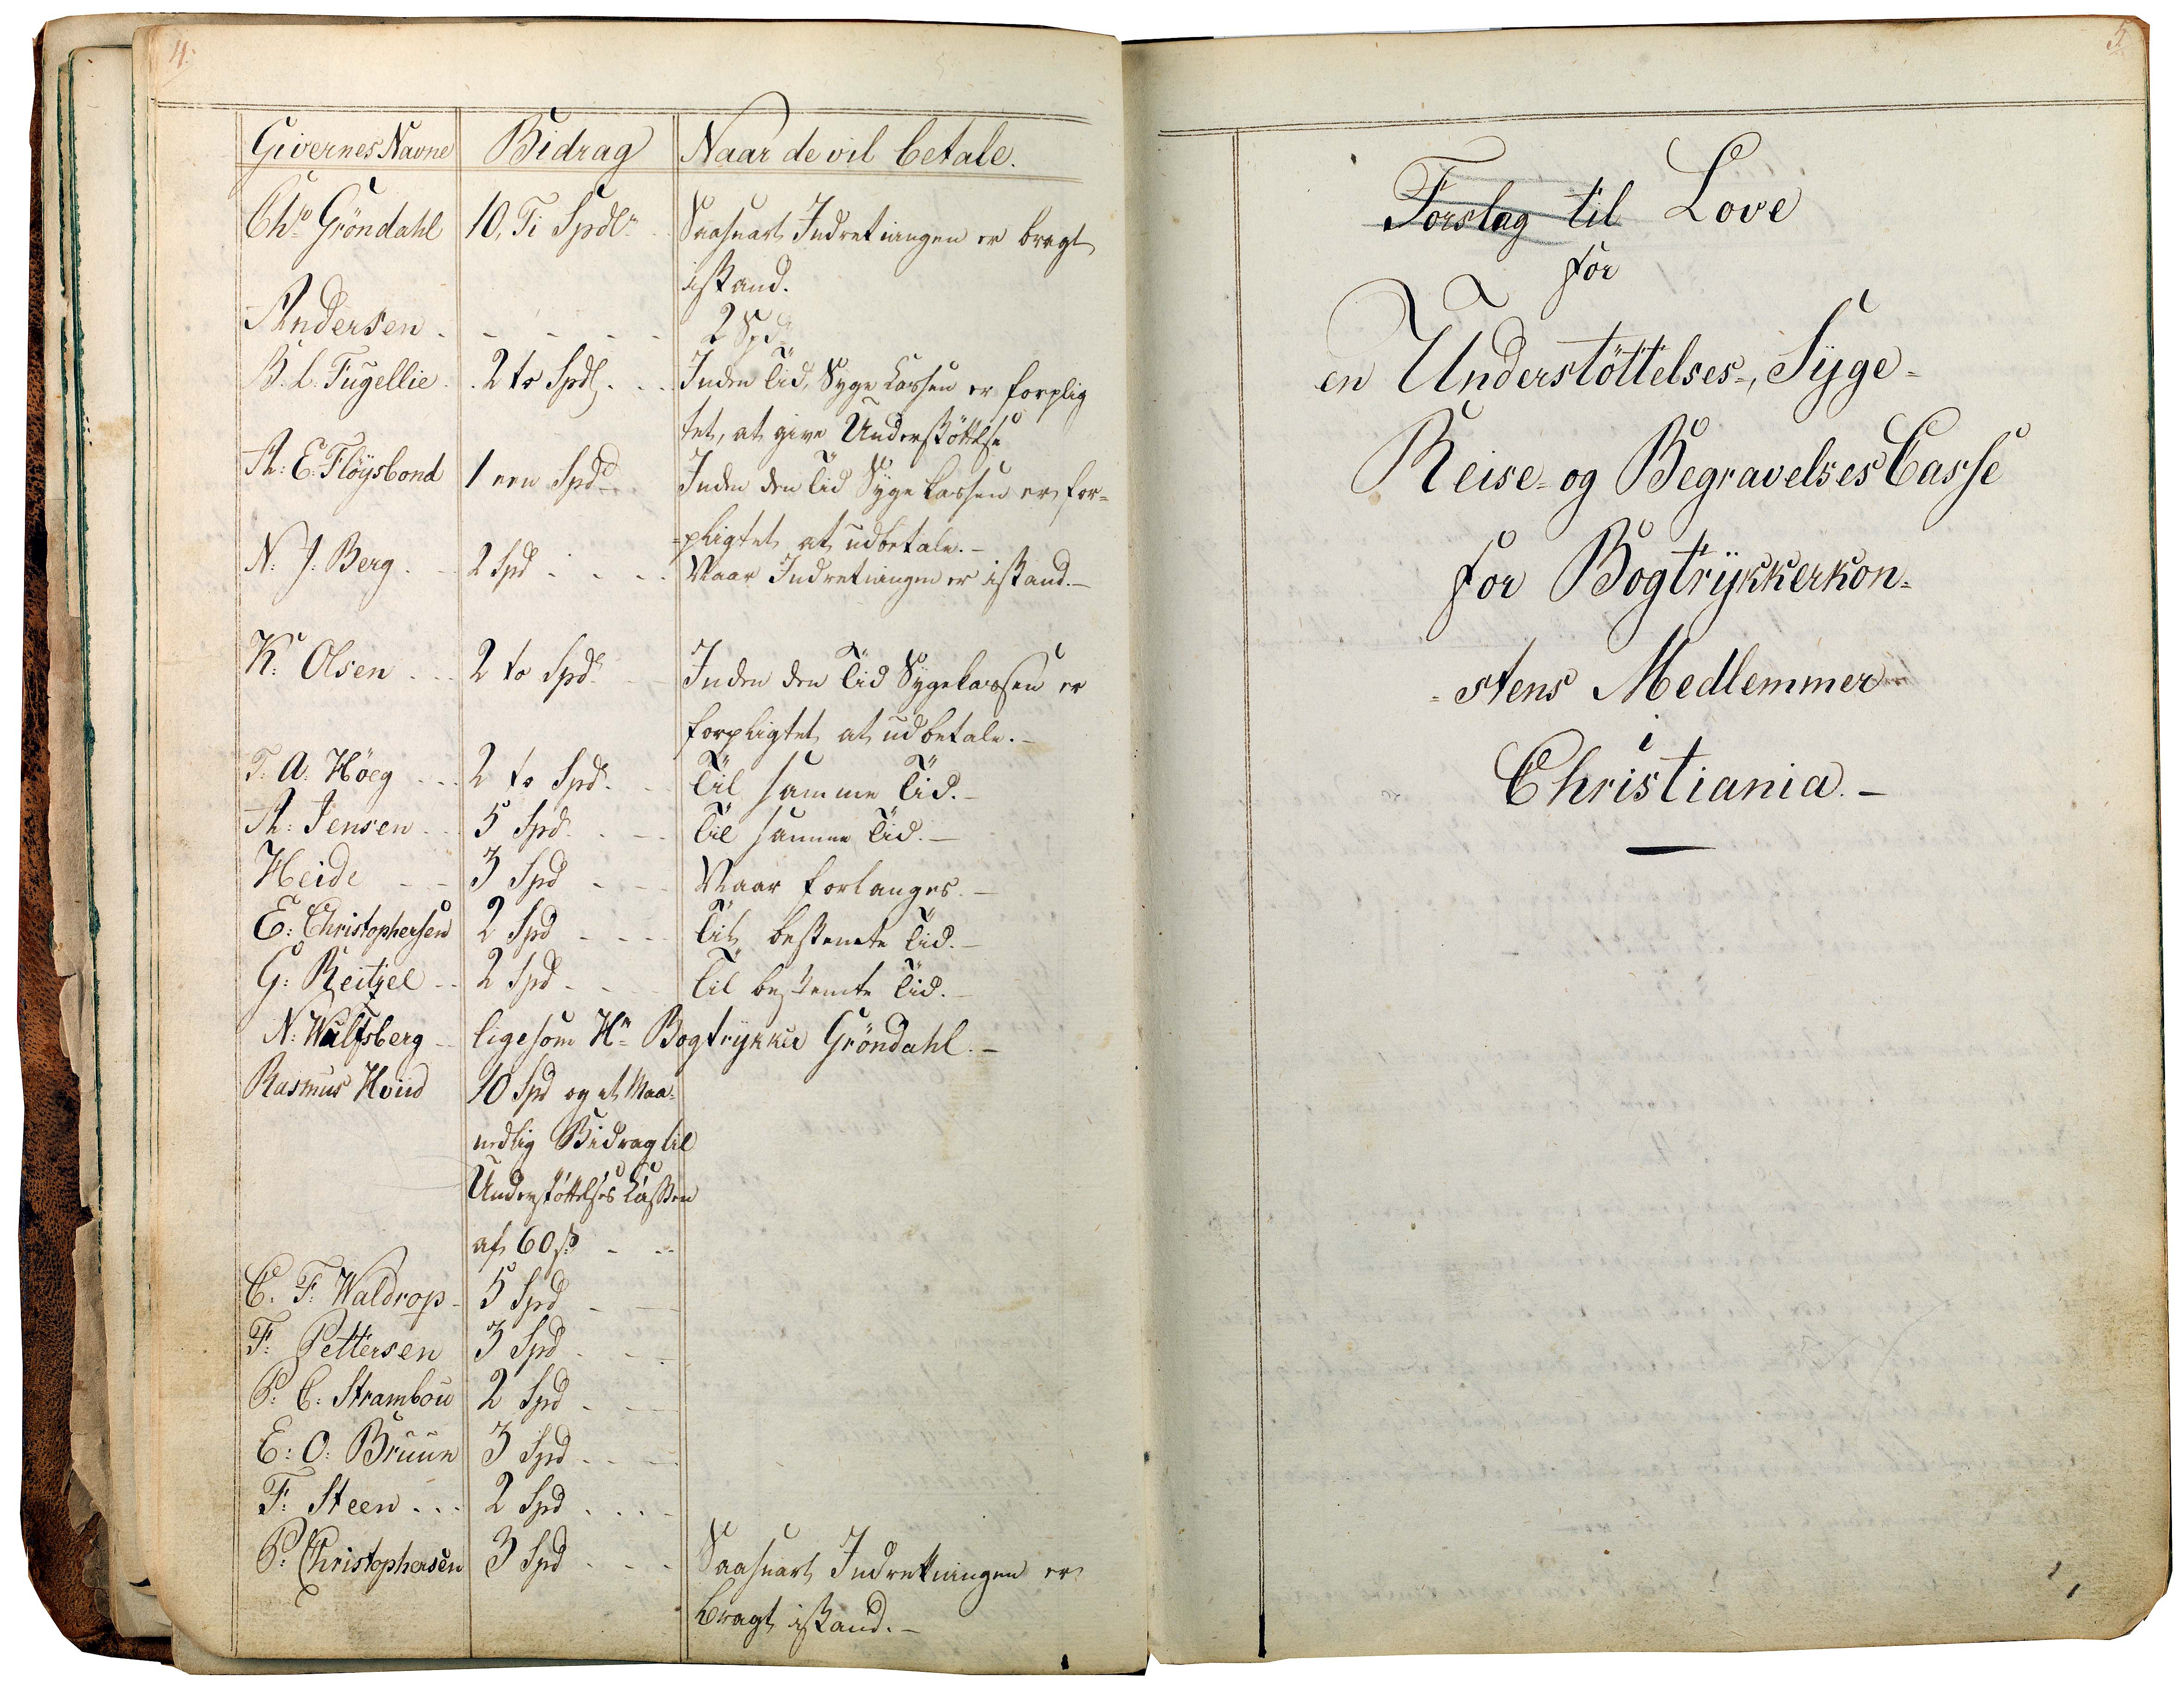 4.
Givernes Navne Bidrag Naar de vil betale.
Chr. Gröndahl 10, Ti Spdlr. Saasnart Indretningen er bragt
istand.
Andersen - - - - 2 Spd
B. L. Fugellie. 2 to Spdl. - - Inden Tid, Syge Cassen er forplig
tet, at give Understöttelse
A: E. Flöysbond 1 een Spd. Inden den Tid Sygekassen er for-
-pligtet at udbetale.-
N: J: Berg. - 2 Spd - - - Naar Indretningen er istand.-
K: Olsen - - - 2 to Spd. Inden den Tid Sygekassen er
forpligtet at udbetale.-
T: A: Höeg - - - 2 to Spd. - Til samme Tid.-
A: Jensen - - 5 Spd. - - Til samme Tid.-
Heide - - 3 Spd - - - Naar forlanges.-
E: Christophersen 2 Spd - - - Til bestemte Tid.-
G: Reitzel - - 2 Spd - - - Til bestemte Tid.-
N: Wulfsberg - ligesom Hr. Bogtrykker Gröndahl.-
Rasmus Hviid 10 Spd og et Maa-
nedlig Bidrag til
Understöttelses Cassen
af 60 ß - - -
C. F. Waldrop - 5 Spd - -
F: Pettersen 3 Spd - - -
P: C: Strambou 2 Spd - -
E: O: Bruun 3 Spd - - -
F: Steen - - - 2 Spd - - - -
P: Christophersen 3 Spd - - - Saasnart Indretningen er
bragt istand.-
5
Forslag til Love
for
en Understöttelses-, Syge-
Reise- og Begravelses Casse
for Bogtrykkerkon-
-stens Medlemmer
i
Christiania.-